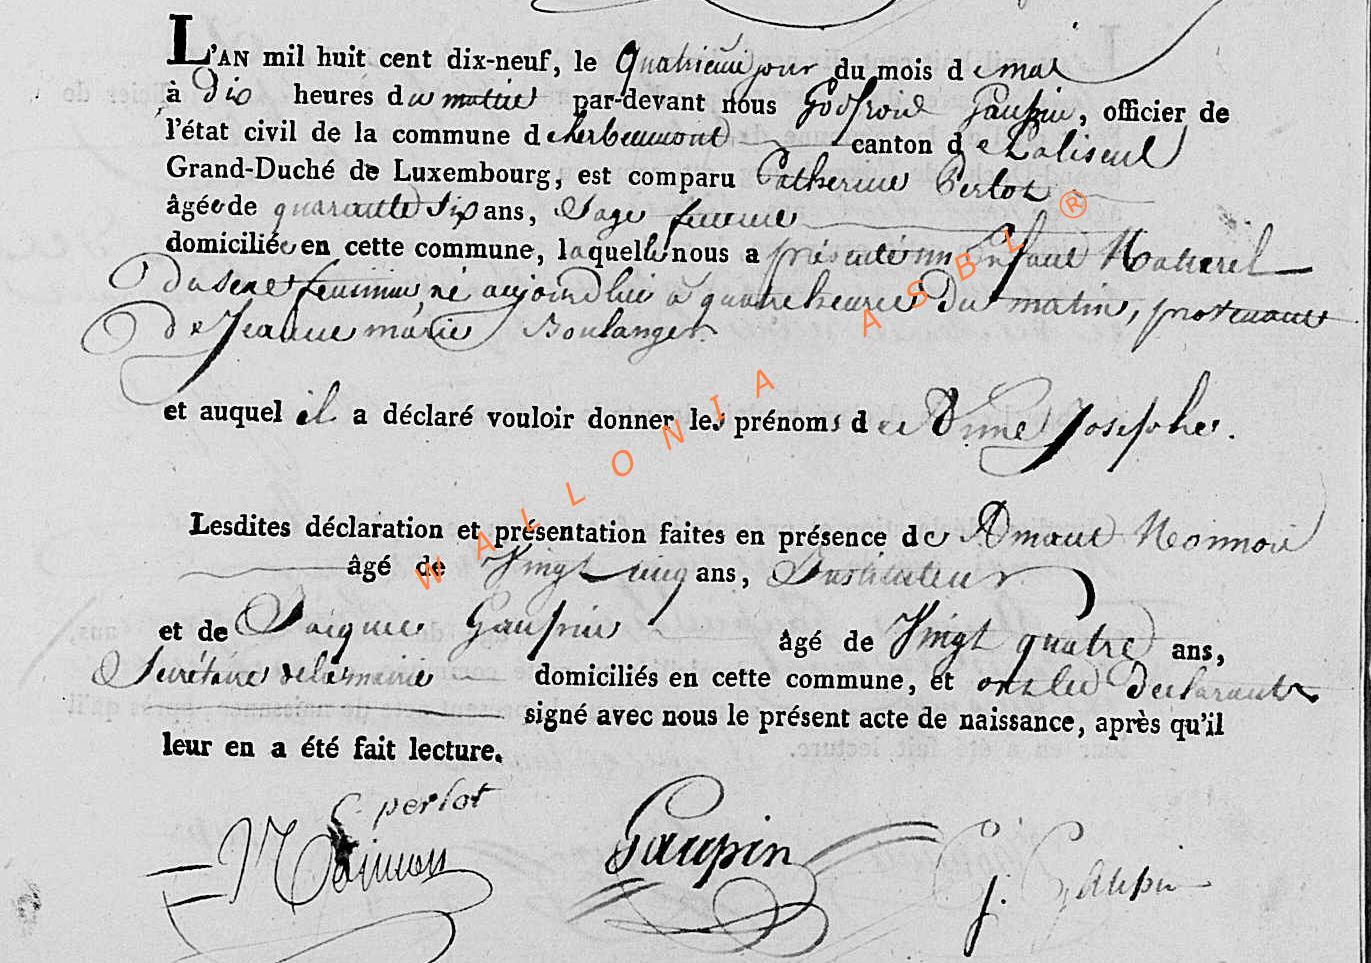 L'AN mil huit cent dix-neuf, le quatrieme jour du mois de mai
à Dix heures du matin par-devant nous Godfroid Gaupin, officier de
l'état civil de la commune d'herbeumont canton de Paliseul
Grand-Duché de Luxembourg, est comparu Catherine Perlot
âgée de quarante six ans, Sage femme
domiciliée en cette commune, laquelle nous a présenté un Enfant Naturel
du sexe feminin, né aujourd'hui à quatre heures Du matin, provenant
De Jeanne marie Boulanger.
et auquel il a déclaré vouloir donner les prénoms de Anne Josephe.
Lesdites déclaration et présentation faites en présence de Amant
âgé de Vingt cinq ans, Instituteur
et de Jacques Gaupin âgé de Vingt quatre ans,
Secrétaire de la mairie domiciliés en cette commune, et ont les Declarants
signé avec nous le présent acte de naissance, après qu'il
leur en a été fait lecture.
C perlot
Gaupin
J. Gaupin
WALLONIA ASBL ®